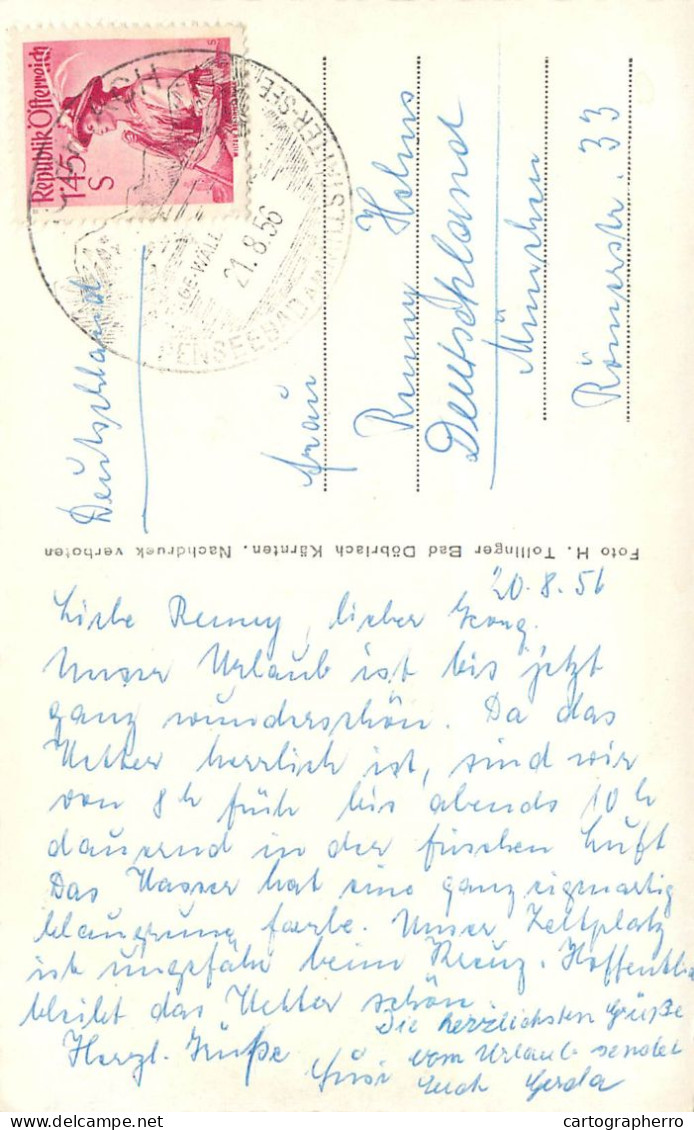 Republik Österreich
1'45
S
21.8.56
Deutschland
Frau
Remy Holms
Deutschland
München
Römerstr. 33
Foto H. Tollinger Bad Döbriach Kärnten. Nachdruck verboten
20.8.56
Liebe Remy, lieber Georg.
Unser Urlaub ist bis jetzt
ganz wunderschön. Da das
Wetter herrlich ist, sind wir
von 8h früh bis abends 10h
dauernd in der frischen Luft
Das Wasser hat eine ganz eigenartig
blaugrüne Farbe. Unser Zeltplatz
ist ungefähr beim Kreuz. Hoffentlich
bleibt das Wetter schön.
Herzl. Grüße
Die herzlichsten Grüße
vom Urlaub sendet
Euch Gerda
delcampe.net
cartographerro